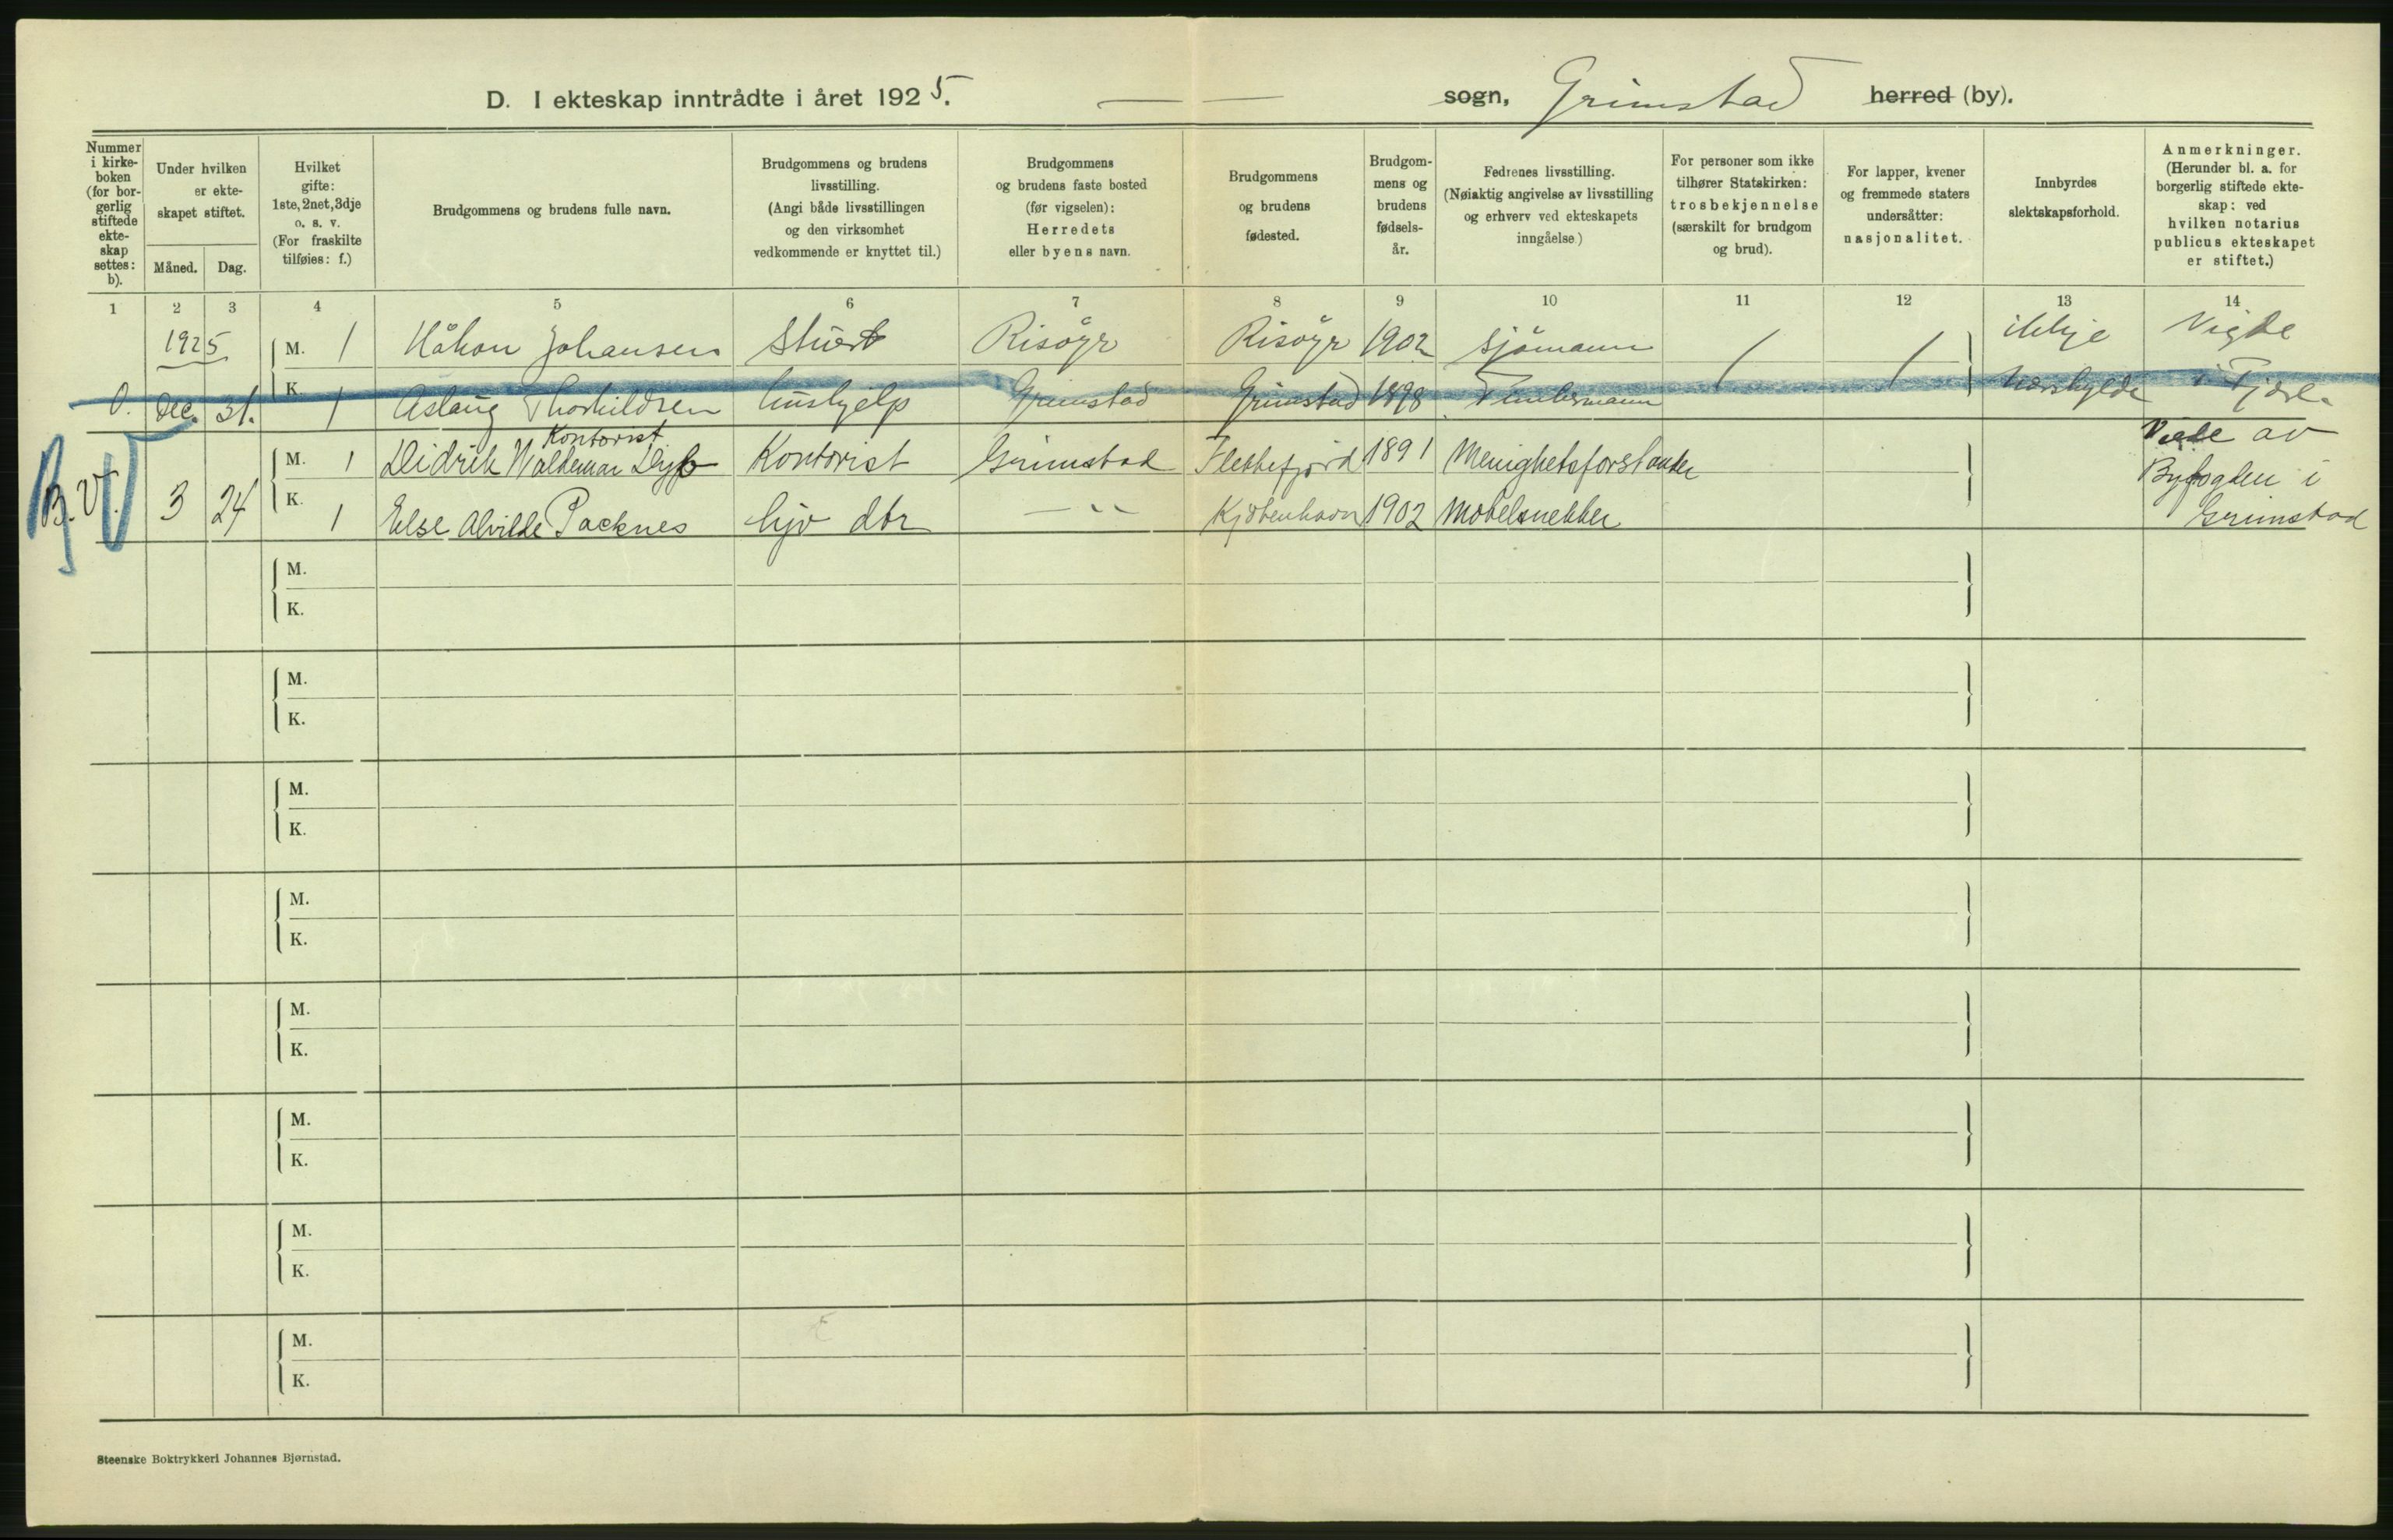 D. I ekteskap inntrådte i året 1925. — — sogn, Grimstad herred (by).
Nummer i kirke- boken (for bor- gerlig stiftede ekte- skap settes: b).
Under hvilken er ekte- skapet stiftet.
Måned. Dag.
Hvilket gifte: 1ste, 2net, 3dje o. s. v. (For fraskilte tilføies: f.)
Brudgommens og brudens fulle navn.
Brudgommens og brudens livsstilling. (Angi både livsstillingen og den virksomhet vedkommende er knyttet til.)
Brudgommens og brudens faste bosted (før vigselen): Herredets eller byens navn.
Brudgommens og brudens fødested.
Brudgom- mens og brudens fødsels- år.
Fedrenes livsstilling. (Nøiaktig angivelse av livsstilling og erhverv ved ekteskapets inngåelse)
For personer som ikke tilhører Statskirken: trosbekjennelse (særskilt for brudgom og brud).
For lapper, kvener og fremmede staters undersåtter: nasjonalitet.
Innbyrdes slektskapsforhold.
Anmerkninger. (Herunder bl. a. for borgerlig stiftede ekte- skap: ved hvilken notarius publicus ekteskapet er stiftet.)
1 2 3 4 5 6 7 8 9 10 11 12 13 14
1925 M. 1 Håkon Johansen Stuert Risöyr Risöyr 1902 sjömann / / ikkje Vigde
0. Dec. 31. K. 1 Aslaug Thorkildsen hushjelp Grimstad Grimstad 1898 Tömmermann nærskylde i Fjære
Kontorist
M. 1 Didrik Waldemar Kontorist Grimstad Flekkefjord 1891 Menighetsforstander Viede av
B.V. 3 24 K. 1 Else Alvilde Packnes hjv dtr — " Kjøbenhavn 1902 Møbelsnekker Byfogden i
Grimstad
M.
K.
M.
K.
M.
K.
M.
K.
M.
K.
M.
K.
M.
K.
M.
K.
Steenske Boktrykkeri Johannes Bjørnstad.